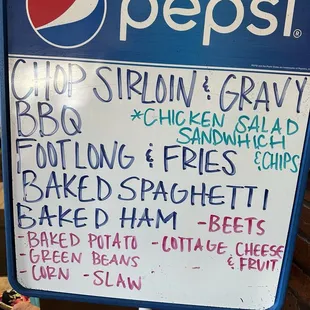 pepsi.
CHOP SIRLOIN & GRAVY
BBQ
*CHICKEN SALAD
SANDWHICH
& CHIPS
FOOTLONG & FRIES
BAKED SPAGHETTI
BAKED HAM
- BEETS
- BAKED POTATO
- COTTAGE CHEESE
& FRUIT
- GREEN BEANS
- CORN - SLAW